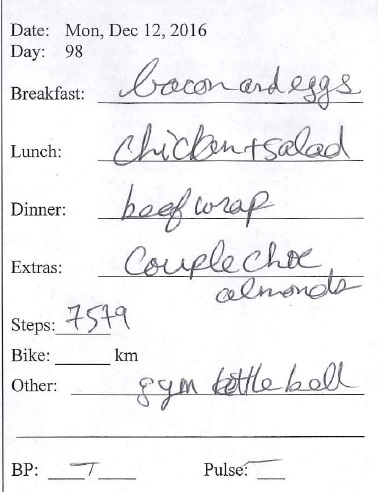 Date: Mon, Dec 12, 2016
Day: 98
Breakfast: bacon and eggs
Lunch: chicken + salad
Dinner: beef wrap
Extras: Couple choc
almonds
Steps: 7579
Bike: ______ km
Other: gym kettle bell
BP: Pulse: